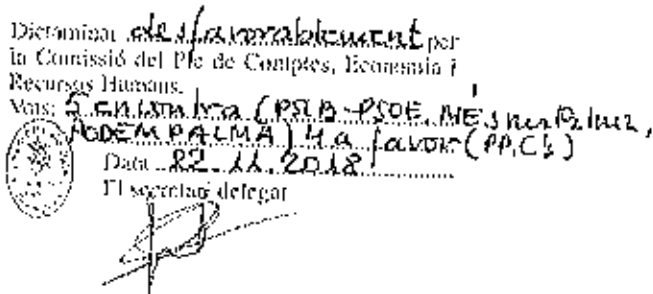 Dictaminat desfavorablement per
la Comissió del Ple de Comptes, Economia i
Recursos Humans.
Vots: 5 en contra (PSIB-PSOE, MÉS per Palma,
PODEM PALMA) 4 a favor (PP, C's)
Data 22.11.2018
El secretari delegat